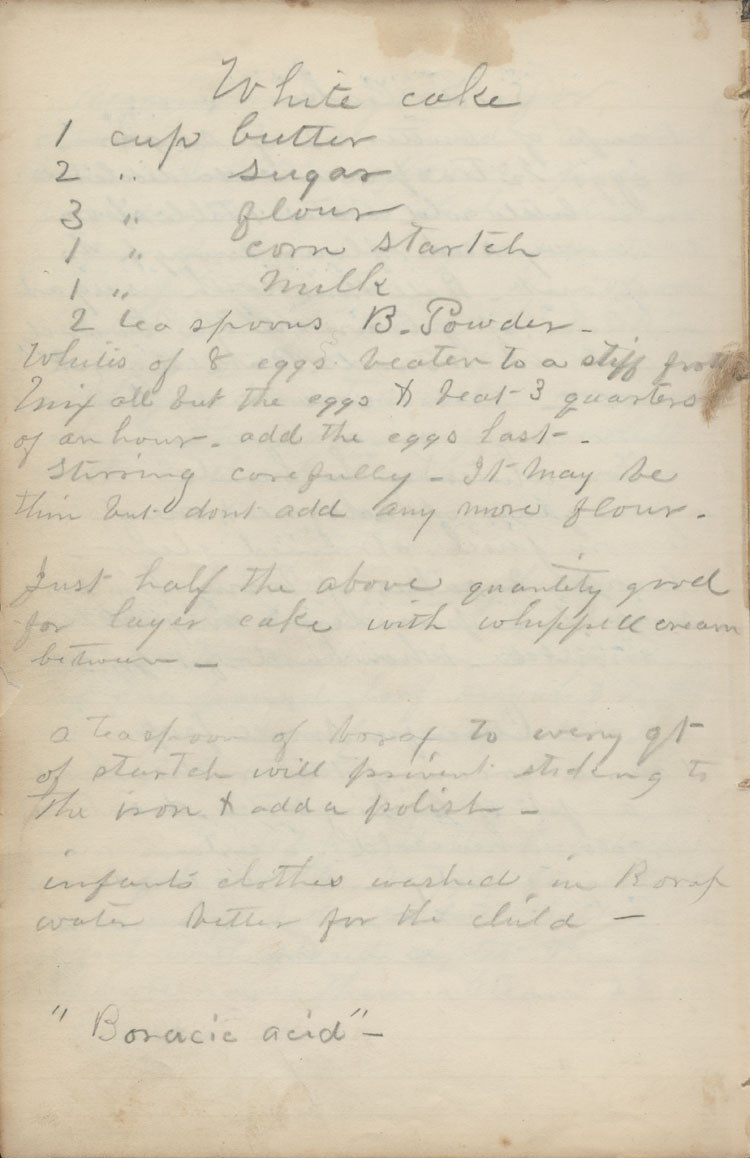 White cake
1 cup butter
2 " sugar
3 " flour
1 " corn startch
1 " Milk
2 tea spoons B. Powder -
Whites of 8 eggs beaten to a stiff froth
Mix all but the eggs & beat 3 quarters
of an hour - add the eggs last -
Stirring carefully - It may be
thin but dont add any more flour -
Just half the above quantity good
for layer cake with whipped cream
between -
a teaspoon of borax to every qt
of startch will prevent sticking to
the iron & add a polish -
infants clothes washed in Borax
water better for the child -
" Boracic acid" -